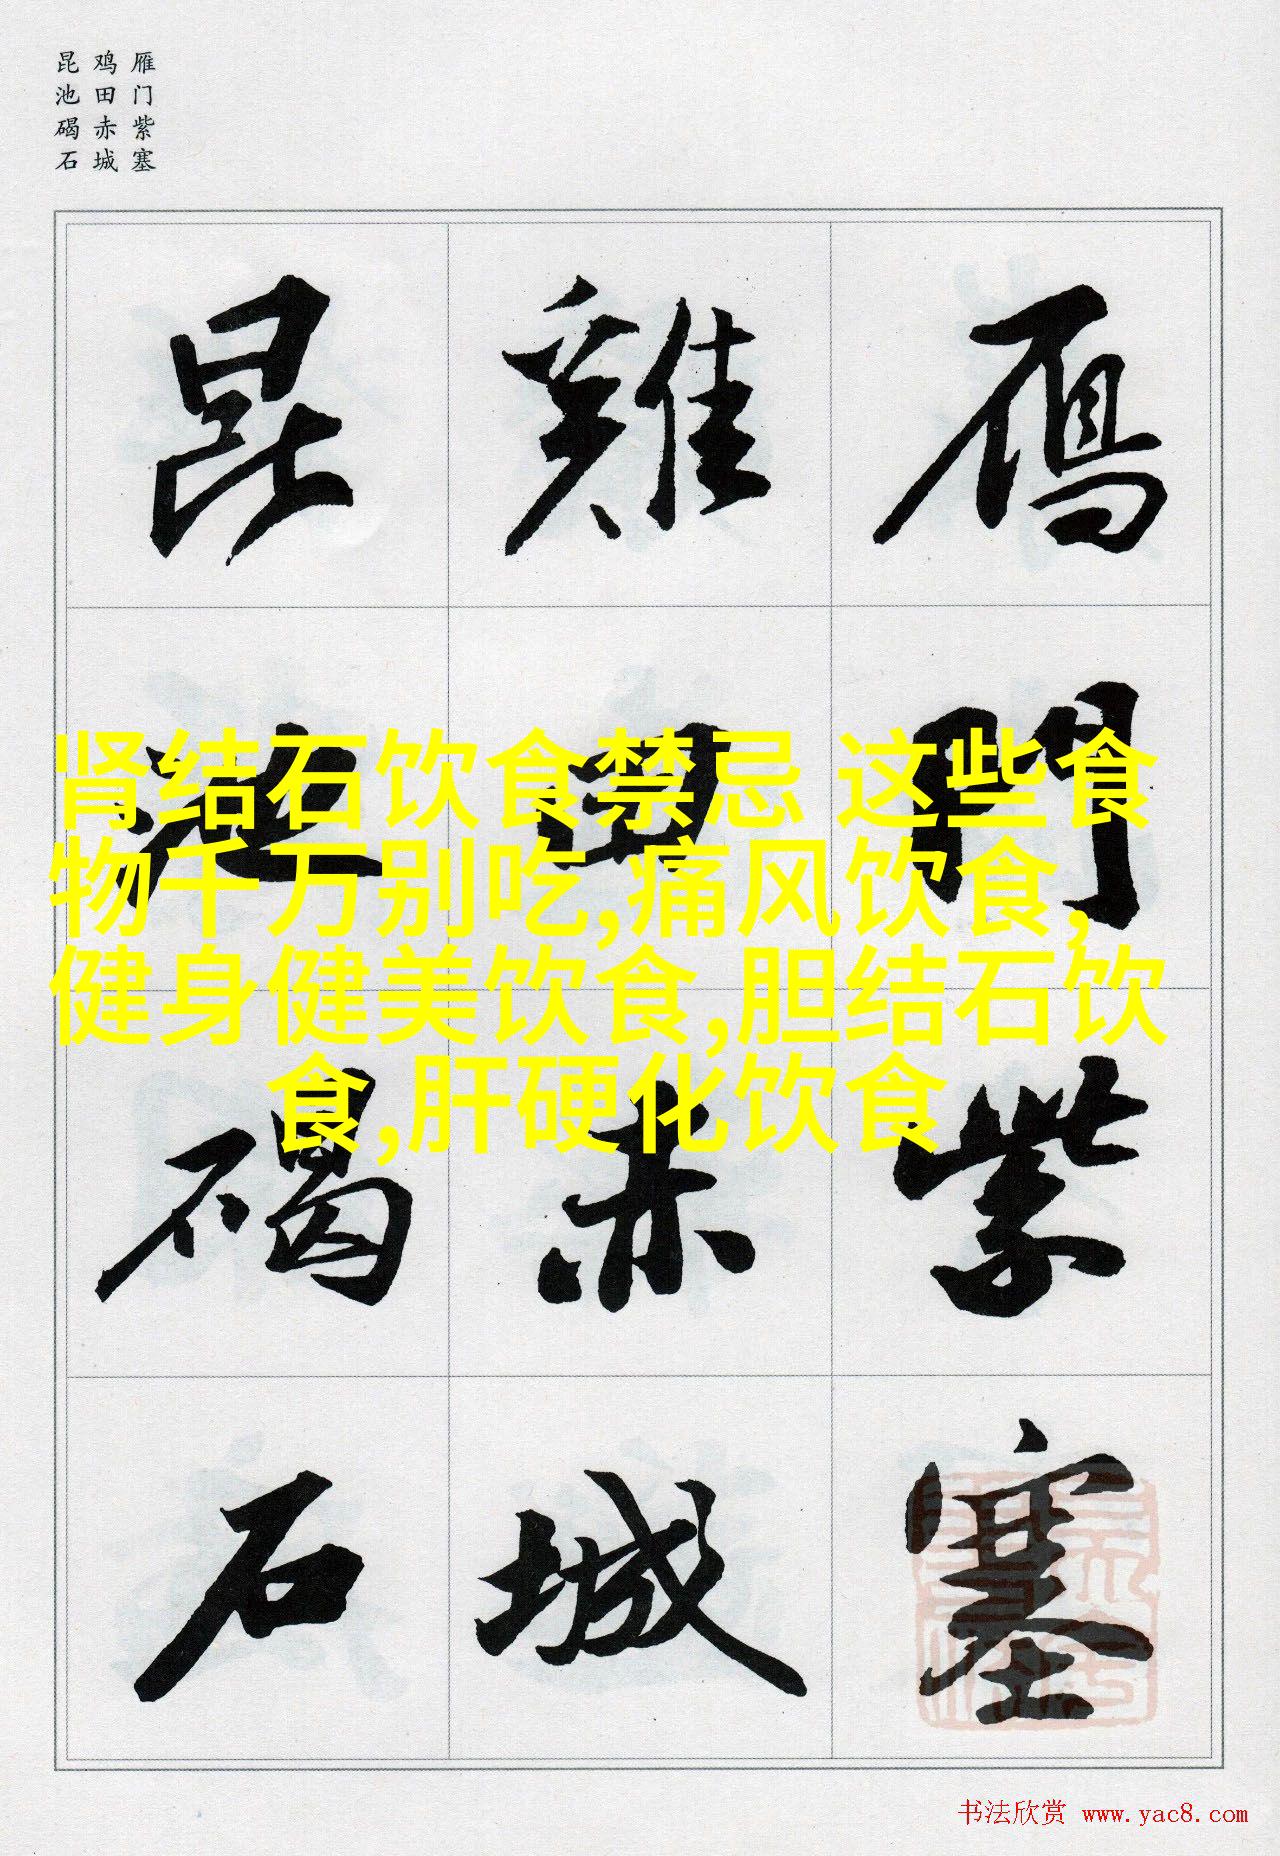 雁门紫塞
鸡田赤城
昆池碣石
鴈門紫塞
雞田赤城
昆池碣石
肾结石饮食禁忌 这些食
物千万别吃,痛风饮食,
健身健美饮食,胆结石饮
食,肝硬化饮食
书法欣赏 www.yac8.com